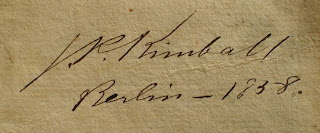 J.P. Kimball
Berlin — 1858.